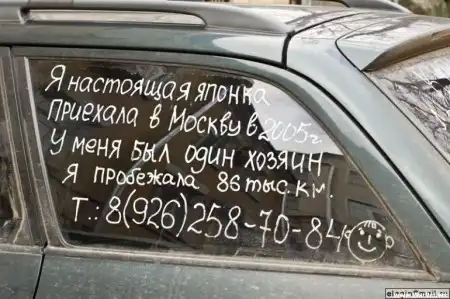 Я настоящая японка
приехала в Москву в 2005г.
У меня был один хозяин
Я пробежала 86 тыс. км.
Т.: 8(926)258-70-84